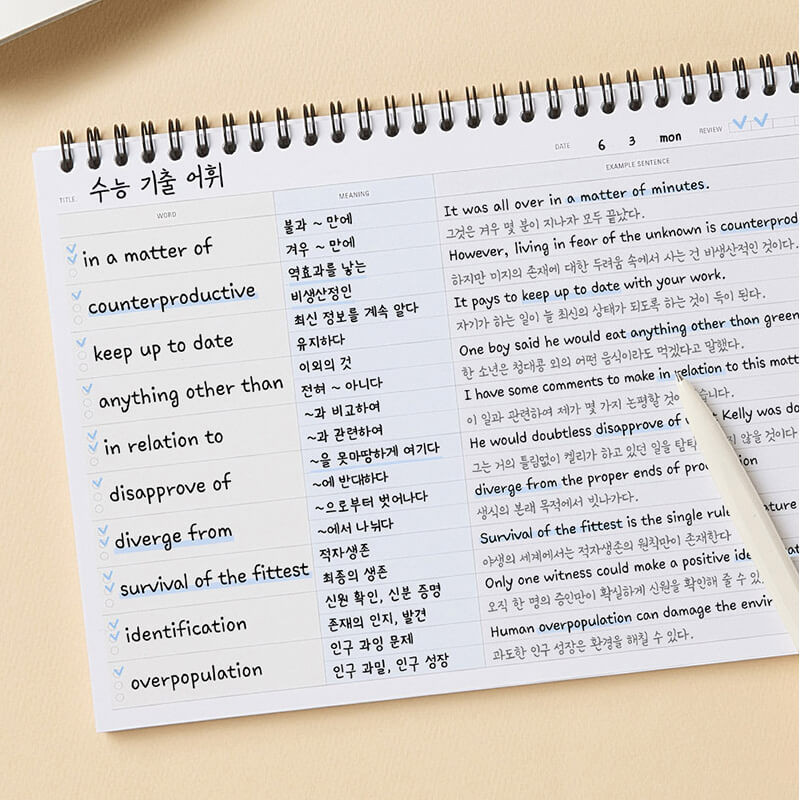 DATE 6 3 mon REVIEW
TITLE 수능 기출 어휘
WORD MEANING EXAMPLE SENTENCE
in a matter of
불과 ~ 만에
겨우 ~ 만에
It was all over in a matter of minutes.
그것은 겨우 몇 분이 지나자 모두 끝났다.
counterproductive
역효과를 낳는
비생산정인
However, living in fear of the unknown is counterprod
하지만 미지의 존재에 대한 두려움 속에서 사는 건 비생산적인 것이다.
keep up to date
최신 정보를 계속 알다
유지하다
It pays to keep up to date with your work.
자기가 하는 일이 늘 최신의 상태가 되도록 하는 것이 득이 된다.
anything other than
이외의 것
전혀 ~ 아니다
One boy said he would eat anything other than green
한 소년은 청대콩 외의 어떤 음식이라도 먹겠다고 말했다.
in relation to
~과 비교하여
~과 관련하여
I have some comments to make in relation to this matt
이 일과 관련하여 제가 몇 가지 논평할 것이 습니다.
disapprove of
~을 못마땅하게 여기다
~에 반대하다
He would doubtless disapprove of Kelly was do
그는 거의 틀림없이 켈리가 하고 있던 일을 탐탁 지 않을 것이다
diverge from
~으로부터 벗어나다
~에서 나뉘다
diverge from the proper ends of
생식의 본래 목적에서 빗나가다.
survival of the fittest
적자생존
최종의 생존
Survival of the fittest is the single rule ature
야생의 세계에서는 적자생존의 원칙만이 존재한다
identification
신원 확인, 신분 증명
존재의 인지, 발견
Only one witness could make a positive ide
오직 한 명의 증인만이 확실하게 신원을 확인해 줄 수 있
overpopulation
인구 과잉 문제
인구 과밀, 인구 성장
Human overpopulation can damage the envir
과도한 인구 성장은 환경을 해칠 수 있다.